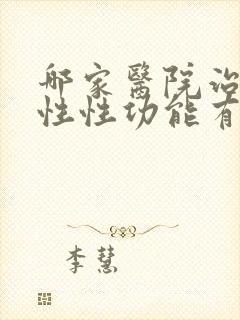 那家醫院治
性性功能有
李慧